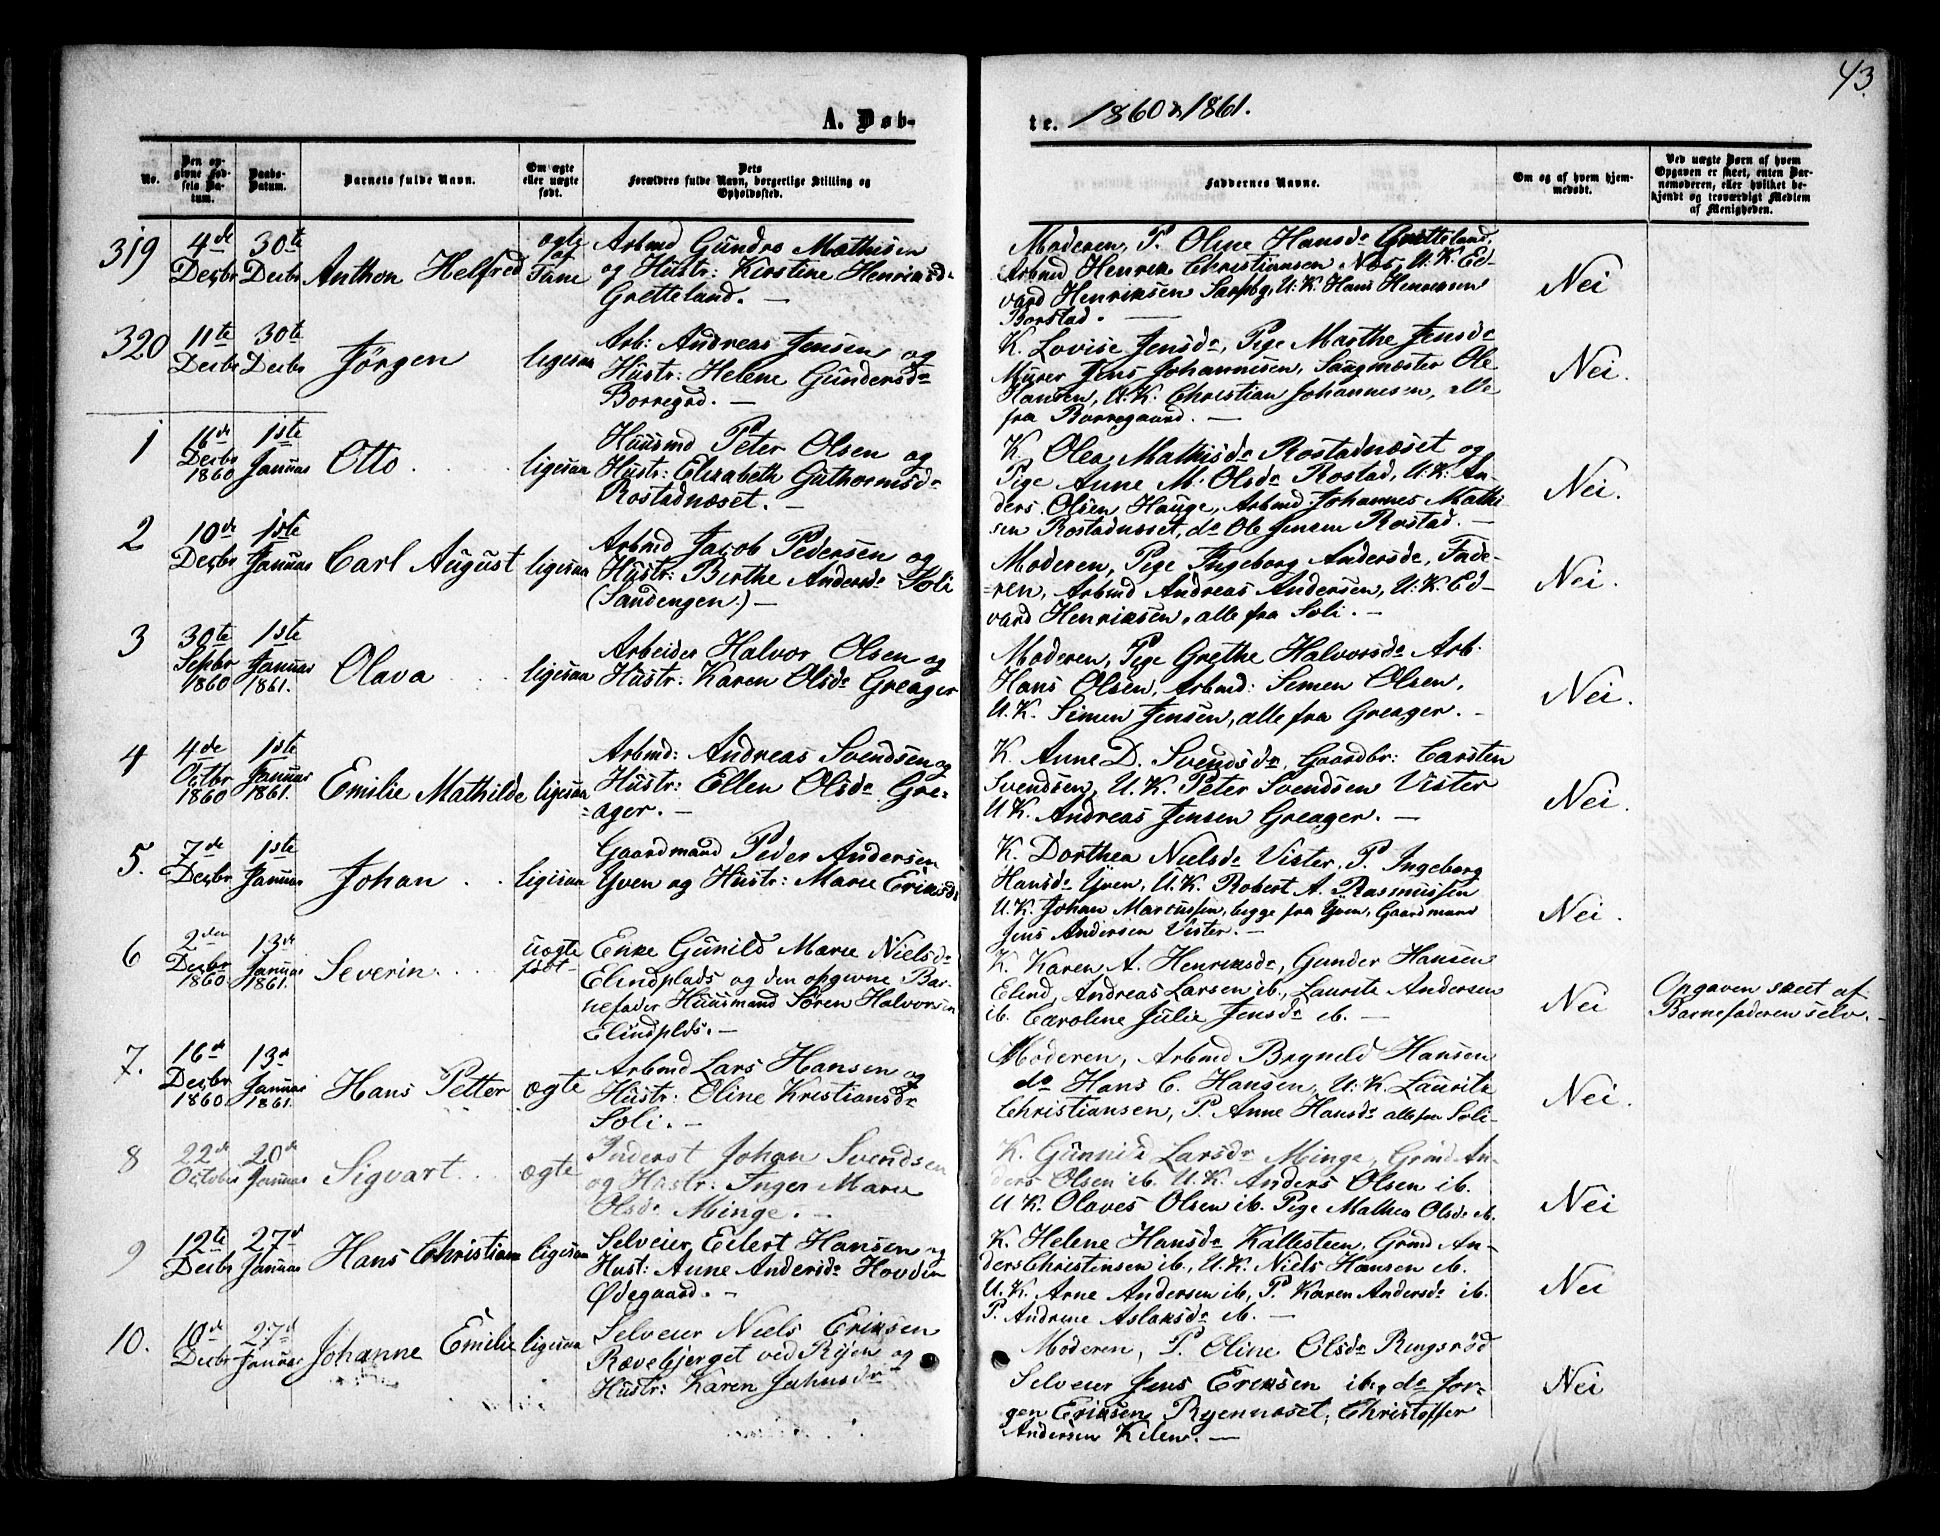 43.
A. Døb-
te. 1860 & 1861.
No.
Den op-
givne Fød-
sels Da-
tum.
Daabs-
Datum.
Barnets fulde Navn.
Om ægte
eller uægte
født.
Dets
Forældres fulde Navn, borgerlige Stilling og
Opholdssted.
Faddernes Navne.
Om og af hvem hjem-
medøbt.
Ved uægte Børn af hvem
Opgaven er skeet, enten Bar-
nemoderen, eller hvilket be-
kjendt og troværdigt Medlem
af Menigheden.
319
4de
Decbr
30te
Decbr
Anthon Helfred
ægte
Tune
Arbmd Gundro Mathisen
og Hustr: Kirstine Henriksd.
Gretteland. —
Moderen, P. Oline Hansdr Gretteland,
Arbmd Henrik Christiansen Næs, U.K. Ed-
vard Henriksen Sarpbg, U.K. Hans Henriksen
Borstad. —
Nei
320
11te
Decbr
30te
Decbr
Jørgen
ligesaa
Arb: Andreas Jensen og
Hustr: Helene Gundersdr
Borregrd. —
K. Lovise Jensdr, Pige Marthe Jensdr
Murer Jens Johannesen, Saugmester Ole
Hansen, U.K. Christian Johannesen, alle
fra Borregaard. —
Nei.
1
16de
Decbr
1860
1ste
Januar
Otto
ligesaa
Huusmd Peter Olsen og
Hustr: Elisabeth Guthormsdr
Rostadnæset. —
K. Olea Mathisdr Rostadnæset og
Pige Anne M. Olsdr Rostad, U.K. An-
ders Olsen Hauge, Arbmd Johannes Mathi-
sen Rostadnæset, do Ole Jensen Rostad. —
Nei.
2
10de
Decbr
1ste
Januar
Carl August
ligesaa
Arbmd Jacob Pedersen og
Hustr: Birthe Andersdr Soli
(Sandengen.) —
Moderen, Pige Ingeborg Andersdr, Fade-
=ren, Arbmd Andreas Andersen, U.K. Ed-
vard Henriksen, alle fra Soli. —
Nei.
3
30te
Septbr
1860
1ste
Januar
1861.
Olava
ligesaa
Arbeider Halvor Olsen og
Hustr. Karen Olsdr Greager
Moderen, Pige Grethe Halvorsdr Arb.
Hans Olsen, Arbmd: Simen Olsen,
U.K. Simen Jensen, alle fra Greager. —
Nei.
4
4de
Octbr
1860
1ste
Januar
1861.
Emilie Mathilde
ligesaa
Arbmd: Andreas Svendsen og
Hustr: Ellen Olsdr Gre-
=ager. —
K. Anne D. Svendsdr, Gaardbr: Carsten
Svendsen, U.K. Peter Svendsen Vister
U.K. Andreas Jensen Greager. —
Nei.
5.
7de
Decbr
1ste
Januar
Johan
ligesaa
Gaardmand Peder Andersen
Yven og Hustr: Marie Eriksdr
K. Dorthea Nielsdr Vister, P. Ingeborg
Hansdr Yven, U.K. Robert A. Rasmussen
U.K. Johan Marcussen, begge fra Yven, Gaardmand
Jens Andersen Vister. —
Nei.
6
2den
Decbr
1860
13de
Januar
1861.
Severin
uægte
født
Enke Gunild Marie Nielsdr
Elindplads og den opgivne Bar-
nefader Huusmand Søren Halvorsen
Elindplds. —
K. Karen A. Henriksdr, Gunder Hansen
Elind, Andreas Larsen ib., Lauritz Andersen
ib. Caroline Julie Jensdr ib. —
Nei
Opgaven skeet af
Barnefaderen selv. —
7.
16de
Decbr
1860
13de
Januar
1861.
Hans Petter
ægte
Arbmd Lars Hansen og
Hustr: Oline Kristiansdr
Soli. —
Moderen, Arbmd Hansen
do Hans C. Hansen, U.K. Lauritz
Christiansen, P. Anne Hansdr alle fra Soli-
Nei.
8
22de
October
20de
Januar
Sigvart
ægte
Inderst Johan Svendsen
og Hustr: Inger Marie
Olsdr Minge. —
K. Gunnild Larsdr Minge, Grmd An-
ders Olsen ib. U.K. Anders Olsen ib.
U.K. Olaves Olsen ib. Pige Mathea Olsdr ib.
Nei
9
12te
Decbr
27de
Januar
Hans Christian
ligesaa
Selveier Edert Hansen og
Hust: Anne Andersdr Hovden
Ødegaard. —
K. Helene Hansdr Kallesteen, Grmd An-
ders Christensen ib., U.K. Niels Hansen ib.
U.K. Arne Andersen ib, P. Karen Andersdr ib.
P. Andrine Aslaksdr ib. —
Nei
10.
10de
Decbr
27de
Januar
Johanne Emilie
ligesaa
Selveier Niels Eriksen
Rævebjerget ved Ryen og
Hustr: Karen Jahnsdr
Moderen, P. Oline Olsdr Ringsrød
Selveier Jens Eriksen ib., do Jør-
gen Eriksen Ryennæset, Christoffer
Andersen Kilen. —
Nei